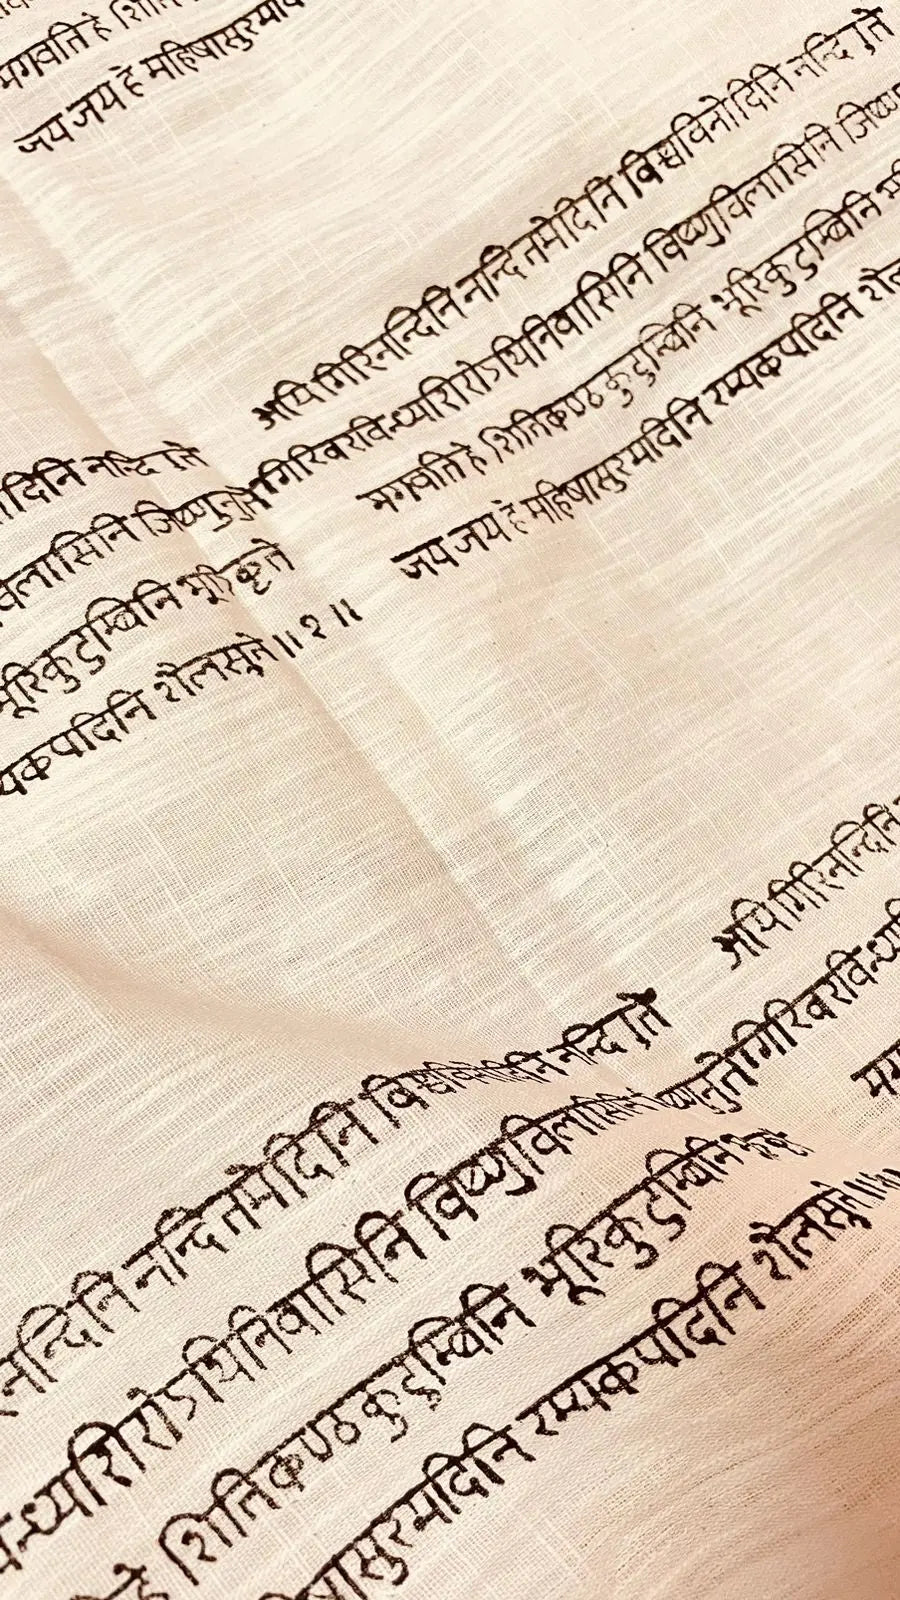 भगवति हे
जय जय हे महिषासुरमर्दि
अयि गिरिनन्दिनि नन्दितमेदिनि विश्वविनोदिनि नन्दि ुते
गिरिवरविन्ध्यशिरोऽधिनिवासिनि विष्णुविलासिनि
भगवति हे शितिकण्ठकुटुम्बिनि भूरिकुटुम्बिनि
जय जय हे महिषासुरमर्दिनि रम्यकपर्दिनि
दिनि नन्दि ुते
विलासिनि जिष्णुनुते
भूरिकुटुम्बिनि भूरिकृते
यकपर्दिनि शैलसुते ॥ १ ॥
अयि गिरिनन्दिनि
गिरिवरविन्ध्य
नन्दिनि नन्दितमेदिनि विश्वविनोदिनि नन्दि ुते
न्ध्यशिरोऽधिनिवासिनि विष्णुविलासिनि ष्णुनुते
हे शितिकण्ठकुटुम्बिनि भूरिकुटुम्बिनि
षासुरमर्दिनि रम्यकपर्दिनि शैलसुते ॥